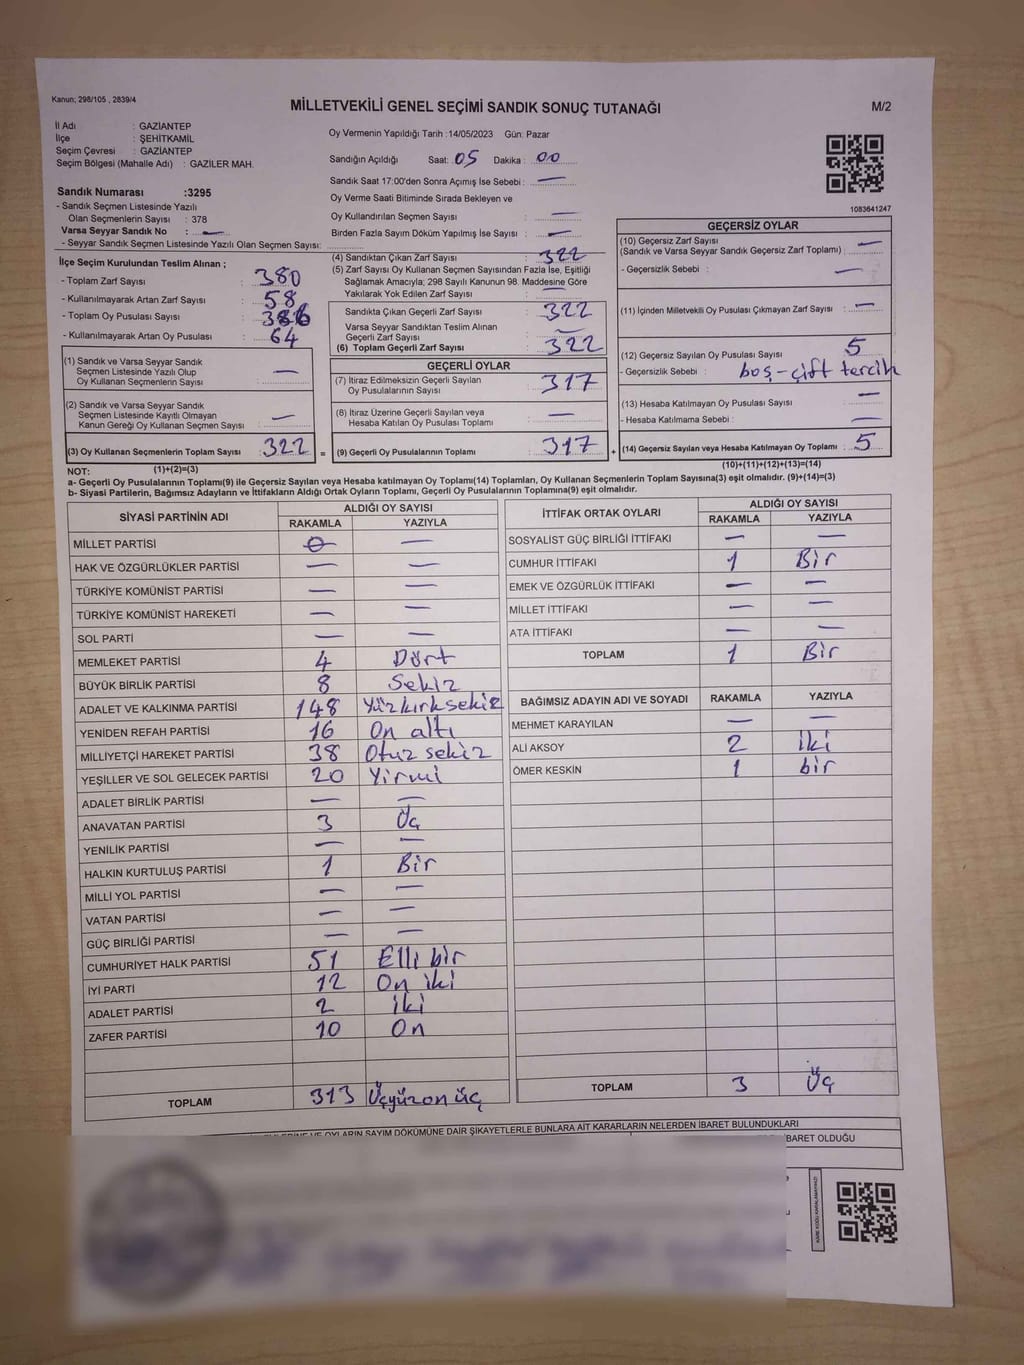 Kanun; 298/105 , 2839/4
MİLLETVEKİLİ GENEL SEÇİMİ SANDIK SONUÇ TUTANAĞI
M/2
İl Adı : GAZİANTEP
İlçe : ŞEHİTKAMİL
Seçim Çevresi : GAZİANTEP
Seçim Bölgesi (Mahalle Adı) : GAZİLER MAH.
Oy Vermenin Yapıldığı Tarih :14/05/2023 Gün: Pazar
Sandığın Açıldığı Saat: 05 Dakika : 00
Sandık Saat 17:00'den Sonra Açımış İse Sebebi : —
Oy Verme Saati Bitiminde Sırada Bekleyen ve
Oy Kullandırılan Seçmen Sayısı : —
Birden Fazla Sayım Döküm Yapılmış İse Sayısı : —
1083641247
Sandık Numarası :3295
- Sandık Seçmen Listesinde Yazılı
Olan Seçmenlerin Sayısı : 378
Varsa Seyyar Sandık No : —
- Seyyar Sandık Seçmen Listesinde Yazılı Olan Seçmen Sayısı:
İlçe Seçim Kurulundan Teslim Alınan ;
- Toplam Zarf Sayısı : 380
- Kullanılmayarak Artan Zarf Sayısı : 58
- Toplam Oy Pusulası Sayısı : 386
- Kullanılmayarak Artan Oy Pusulası : 64
(1) Sandık ve Varsa Seyyar Sandık
Seçmen Listesinde Yazılı Olup
Oy Kullanan Seçmenlerin Sayısı : —
(2) Sandık ve Varsa Seyyar Sandık
Seçmen Listesinde Kayıtlı Olmayan
Kanun Gereği Oy Kullanan Seçmen Sayısı : —
(3) Oy Kullanan Seçmenlerin Toplam Sayısı : 322 =
(1)+(2)=(3)
(4) Sandıktan Çıkan Zarf Sayısı : 322
(5) Zarf Sayısı Oy Kullanan Seçmen Sayısından Fazla İse, Eşitliği
Sağlamak Amacıyla; 298 Sayılı Kanunun 98. Maddesine Göre
Yakılarak Yok Edilen Zarf Sayısı : —
Sandıkta Çıkan Geçerli Zarf Sayısı : 322
Varsa Seyyar Sandıktan Teslim Alınan
Geçerli Zarf Sayısı : —
(6) Toplam Geçerli Zarf Sayısı : 322
GEÇERLİ OYLAR
(7) İtiraz Edilmeksizin Geçerli Sayılan
Oy Pusulalarının Sayısı : 317
(8) İtiraz Üzerine Geçerli Sayılan veya
Hesaba Katılan Oy Pusulası Toplamı : —
(9) Geçerli Oy Pusulalarının Toplamı : 317 +
GEÇERSİZ OYLAR
(10) Geçersiz Zarf Sayısı
(Sandık ve Varsa Seyyar Sandık Geçersiz Zarf Toplamı) : —
- Geçersizlik Sebebi : —
(11) İçinden Milletvekili Oy Pusulası Çıkmayan Zarf Sayısı : —
(12) Geçersiz Sayılan Oy Pusulası Sayısı : 5
- Geçersizlik Sebebi : boş-çift tercih
(13) Hesaba Katılmayan Oy Pusulası Sayısı : —
- Hesaba Katılmama Sebebi : —
(14) Geçersiz Sayılan veya Hesaba Katılmayan Oy Toplamı : 5
(10)+(11)+(12)+(13)=(14)
NOT:
a- Geçerli Oy Pusulalarının Toplamı(9) ile Geçersiz Sayılan veya Hesaba katılmayan Oy Toplamı(14) Toplamları, Oy Kullanan Seçmenlerin Toplam Sayısına(3) eşit olmalıdır. (9)+(14)=(3)
b- Siyasi Partilerin, Bağımsız Adayların ve İttifakların Aldığı Ortak Oyların Toplamı, Geçerli Oy Pusulalarının Toplamına(9) eşit olmalıdır.
SİYASİ PARTİNİN ADI ALDIĞI OY SAYISI
RAKAMLA YAZIYLA
MİLLET PARTİSİ 0 —
HAK VE ÖZGÜRLÜKLER PARTİSİ — —
TÜRKİYE KOMÜNİST PARTİSİ — —
TÜRKİYE KOMÜNİST HAREKETİ — —
SOL PARTİ — —
MEMLEKET PARTİSİ 4 Dört
BÜYÜK BİRLİK PARTİSİ 8 Sekiz
ADALET VE KALKINMA PARTİSİ 148 Yüzkırksekiz
YENİDEN REFAH PARTİSİ 16 On altı
MİLLİYETÇİ HAREKET PARTİSİ 38 Otuz sekiz
YEŞİLLER VE SOL GELECEK PARTİSİ 20 Yirmi
ADALET BİRLİK PARTİSİ — —
ANAVATAN PARTİSİ 3 Üç
YENİLİK PARTİSİ — —
HALKIN KURTULUŞ PARTİSİ 1 Bir
MİLLİ YOL PARTİSİ — —
VATAN PARTİSİ — —
GÜÇ BİRLİĞİ PARTİSİ — —
CUMHURİYET HALK PARTİSİ 51 Elli bir
İYİ PARTİ 12 On iki
ADALET PARTİSİ 2 İki
ZAFER PARTİSİ 10 On
TOPLAM 313 Üçyüzon üç
İTTİFAK ORTAK OYLARI ALDIĞI OY SAYISI
RAKAMLA YAZIYLA
SOSYALİST GÜÇ BİRLİĞİ İTTİFAKI — —
CUMHUR İTTİFAKI 1 Bir
EMEK VE ÖZGÜRLÜK İTTİFAKI — —
MİLLET İTTİFAKI — —
ATA İTTİFAKI — —
TOPLAM 1 Bir
BAĞIMSIZ ADAYIN ADI VE SOYADI RAKAMLA YAZIYLA
MEHMET KARAYILAN — —
ALİ AKSOY 2 İki
ÖMER KESKİN 1 bir
TOPLAM 3 Üç
OYLARIN SAYIM DÖKÜMÜNE DAİR ŞİKAYETLERLE BUNLARA AİT KARARLARIN NELERDEN İBARET BULUNDUKLARI
İBARET OLDUĞU
KARE KODU KARALAMAYINIZ!